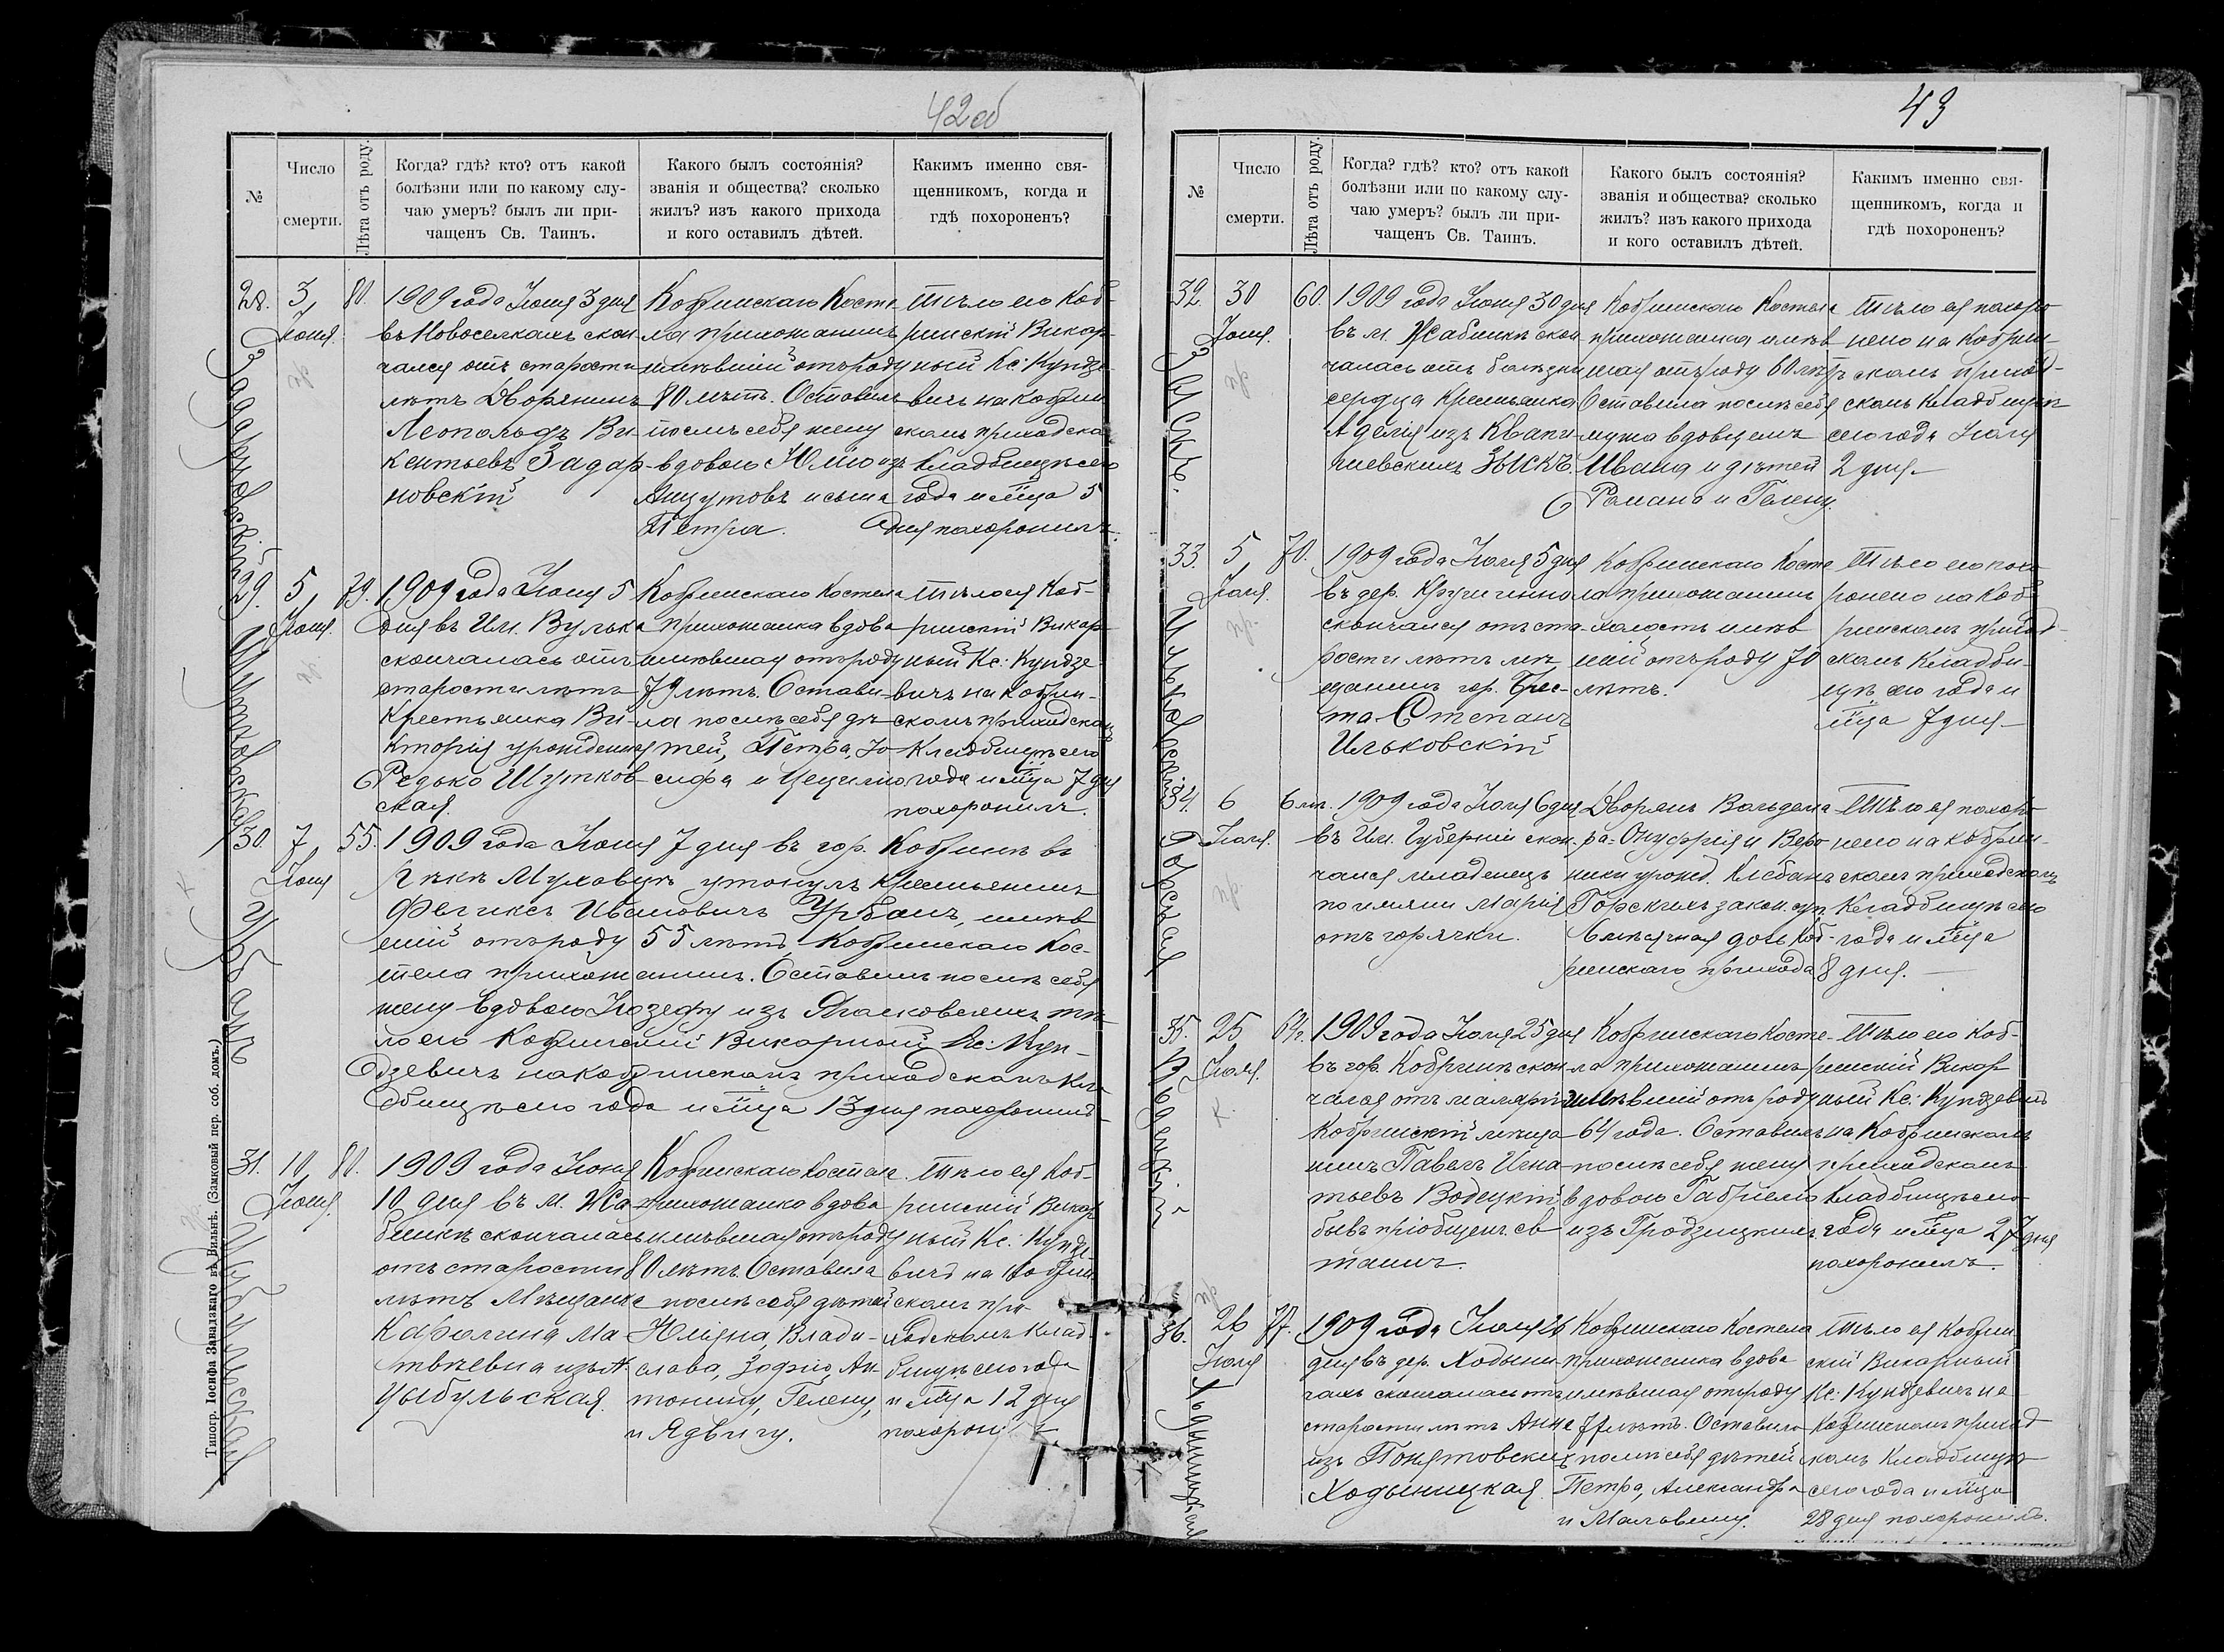 42 об
№
Число
смерти.
Лѣта отъ роду.
Когда? гдѣ? кто? отъ какой
болѣзни или по какому слу-
чаю умеръ? былъ ли при-
чащенъ Св. Таинъ.
Какого былъ состоянія?
званія и общества? сколько
жилъ? изъ какого прихода
и кого оставилъ дѣтей.
Какимъ именно свя-
щенникомъ, когда и
гдѣ похороненъ?
Задарновскій
28.
3,
Іюня.
80.
1909 года Іюня 3 дня
въ Новоселкахъ скон-
чался отъ старости
лѣтъ Дворянинъ
Леопольдъ Ви-
кентьевъ Задар-
новскій
Кобринскаго Косте-
ла прихожанинъ
имѣвшій отъ роду
80 лѣтъ. Оставилъ
послѣ себя жену
вдовою Юлію изъ
и сына
Петра.
Тѣло его Коб-
ринскій Викар-
ный Кс: Кундзе-
вичъ на Кобрин-
скомъ приходском
Кладбищѣ сего
года и м‍ца 5
дня похоронилъ.
Шутковская
29.
5,
Іюня.
79.
1909 года Іюня 5
дня въ Им. Вулька
скончалась отъ
старости лѣтъ
Крестьянка Ви-
кторія урожденная
Редько Шутков-
ская.
Кобринскаго Костела
прихожанка вдова
имѣвшая отъ роду
79 лѣтъ. Остави-
ла послѣ себя дѣ-
тей, Петра, Іо-
сифа и Цецилію
Тѣло ея Коб-
ринскій Викар-
ный Кс: Кундзе-
вичъ на Кобрин-
скомъ приходскомъ
Кладбищѣ сего
года и м‍ца 7 дня
похоронилъ.
Урбанъ
30.
7,
Іюня
55.
1909 года Іюня 7 дня въ гор. Кобринѣ въ
рѣкѣ Мухавцѣ утонулъ крестьянинъ
Феликсъ Ивановичъ Урбанъ, имѣв-
шій отъ роду 55 лѣтъ Кобринскаго Кос-
тела прихожанинъ. Оставилъ послѣ себя
жену вдовою Іозефу изъ тѣ-
ло его Кобринскій Викарный Кс: Кун-
дзевичъ на Кобринскомъ приходскомъ Кла-
дбищѣ сего года и м‍ца 13 дня похоронилъ
Цыбульская
31.
10,
Іюня.
80.
1909 года Іюня
10 дня въ м. Жа-
бинкѣ скончалась
отъ старости
лѣтъ Мѣщанка
Каролина Ма-
твѣевна изъ А.
Цыбульская.
Кобринскаго Костела
прихожанка вдова
имѣвшая отъ роду
80 лѣтъ. Оставила
послѣ себя дѣтей
Юліяна, Влади-
слава, Зофію, Ан-
тонину, Гелену,
и Ядвигу.
Тѣло ея Коб-
ринскій Викар-
ный Кс. Кундзе-
вичъ на Кобрин-
скомъ при-
ходскомъ Клад-
бищѣ сего года
и м‍ца 12 дня
похоронилъ
Типогр. Іосифа Завадзкаго въ Вильнѣ. (Замковый пер. соб. домъ.)
43
№
Число
смерти.
Лѣта отъ роду.
Когда? гдѣ? кто? отъ какой
болѣзни или по какому слу-
чаю умеръ? былъ ли при-
чащенъ Св. Таинъ.
Какого былъ состоянія?
званія и общества? сколько
жилъ? изъ какого прихода
и кого оставилъ дѣтей.
Какимъ именно свя-
щенникомъ, когда и
гдѣ похороненъ?
Зыскъ.
32.
30
Іюня.
60.
1909 года Іюня 30 дня
въ м. Жабинкѣ скон-
чалась отъ болѣзни
сердца Крестьянка
Аделія изъ
Зыскъ.
Кобринскаго Костела
прихожанка имѣв-
шая отъ роду 60 лѣтъ
Оставила послѣ себя
мужа вдовцемъ
Ивана и дѣтей
Романа и Гелену.
Тѣло ея похоро-
нено на Кобрин-
скомъ приход-
скомъ Кладбищѣ
сего года Іюля
2 дня.
Ильковскій
33.
5
Іюля.
70.
1909 года Іюля 5 дня
въ дер.
скончался отъ ста-
рости лѣтъ мѣ-
щанинъ гор. Брес-
та Степанъ
Ильковскій
Кобринскаго Косте-
ла прихожанинъ
холостъ имѣв-
шій отъ роду 70
лѣтъ.
Тѣло его похо-
ронено на Коб-
ринскомъ приход-
скомъ Кладби-
щѣ сего года и
м‍ца 7 дня
Горская
34.
6
Іюля.
6 м.
1909 года Іюля 6 дня
въ Им. Губерніи скон-
чался младенецъ
по имени Марія
отъ горячки.
Дворянъ Вольдема-
ра-Онуфрія и Веро-
ники урожд. Клебанъ
Горскихъ закон. суп.
6 мѣсячная дочь Коб-
ринскаго прихода
Тѣло ея похоро-
нено на Кобрин-
скомъ приходскомъ
Кладбищѣ сего
года и м‍ца
8 дня.
Водецкій
35.
25
Іюля.
64.
1909 года Іюля 25 дня
въ гор. Кобринѣ скон-
чался отъ маляріи
Кобринскій мѣща-
нинъ Павелъ Игна-
тьевъ Водецкій
бывъ пріобщенъ св.
таинъ.
Кобринскаго Косте-
ла прихожанинъ
имѣвшій отъ роду
64 года. Оставилъ
послѣ себя жену
вдовою Габріелю
изъ Гродзицкихъ
Тѣло его Коб-
ринскій Викар-
ный Кс: Кундзевичъ
на Кобринскомъ
приходскомъ
Кладбищѣ сего
года и м‍ца 27 дня
похоронилъ.
Ходыницкая
36.
26
Іюля
77.
1909 года Іюля 26
дня въ дер. Ходыни-
чахъ скончалась отъ
старости лѣтъ Анна
изъ Понятовскихъ
Ходыницкая.
Кобринскаго Костела
прихожанка вдова
имѣвшая отъ роду
77 лѣтъ. Оставила
послѣ себя дѣтей
Петра, Александра
и Мальвину.
Тѣло ея Кобрин-
скій Викарный
Кс: Кундзевичъ на
Кобринскомъ приход-
скомъ Кладбищѣ
сего года и м‍ца
28 дня похоронилъ.